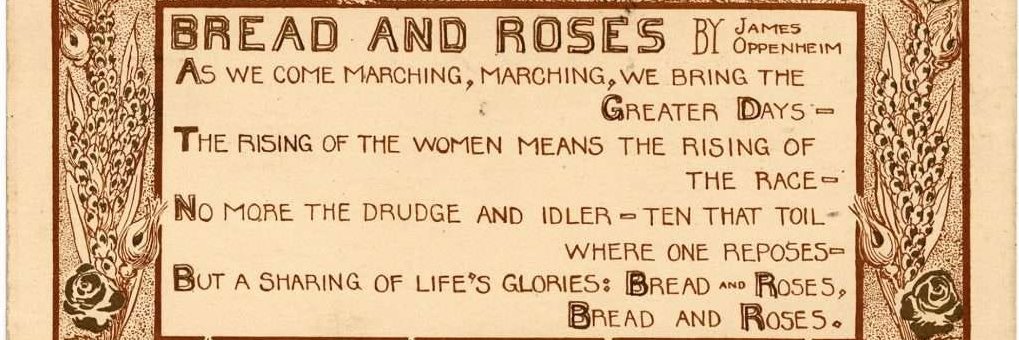 BREAD AND ROSES BY JAMES OPPENHEIM
AS WE COME MARCHING, MARCHING, WE BRING THE
GREATER DAYS-
THE RISING OF THE WOMEN MEANS THE RISING OF
THE RACE-
NO MORE THE DRUDGE AND IDLER-TEN THAT TOIL
WHERE ONE REPOSES-
BUT A SHARING OF LIFE'S GLORIES: BREAD AND ROSES,
BREAD AND ROSES.